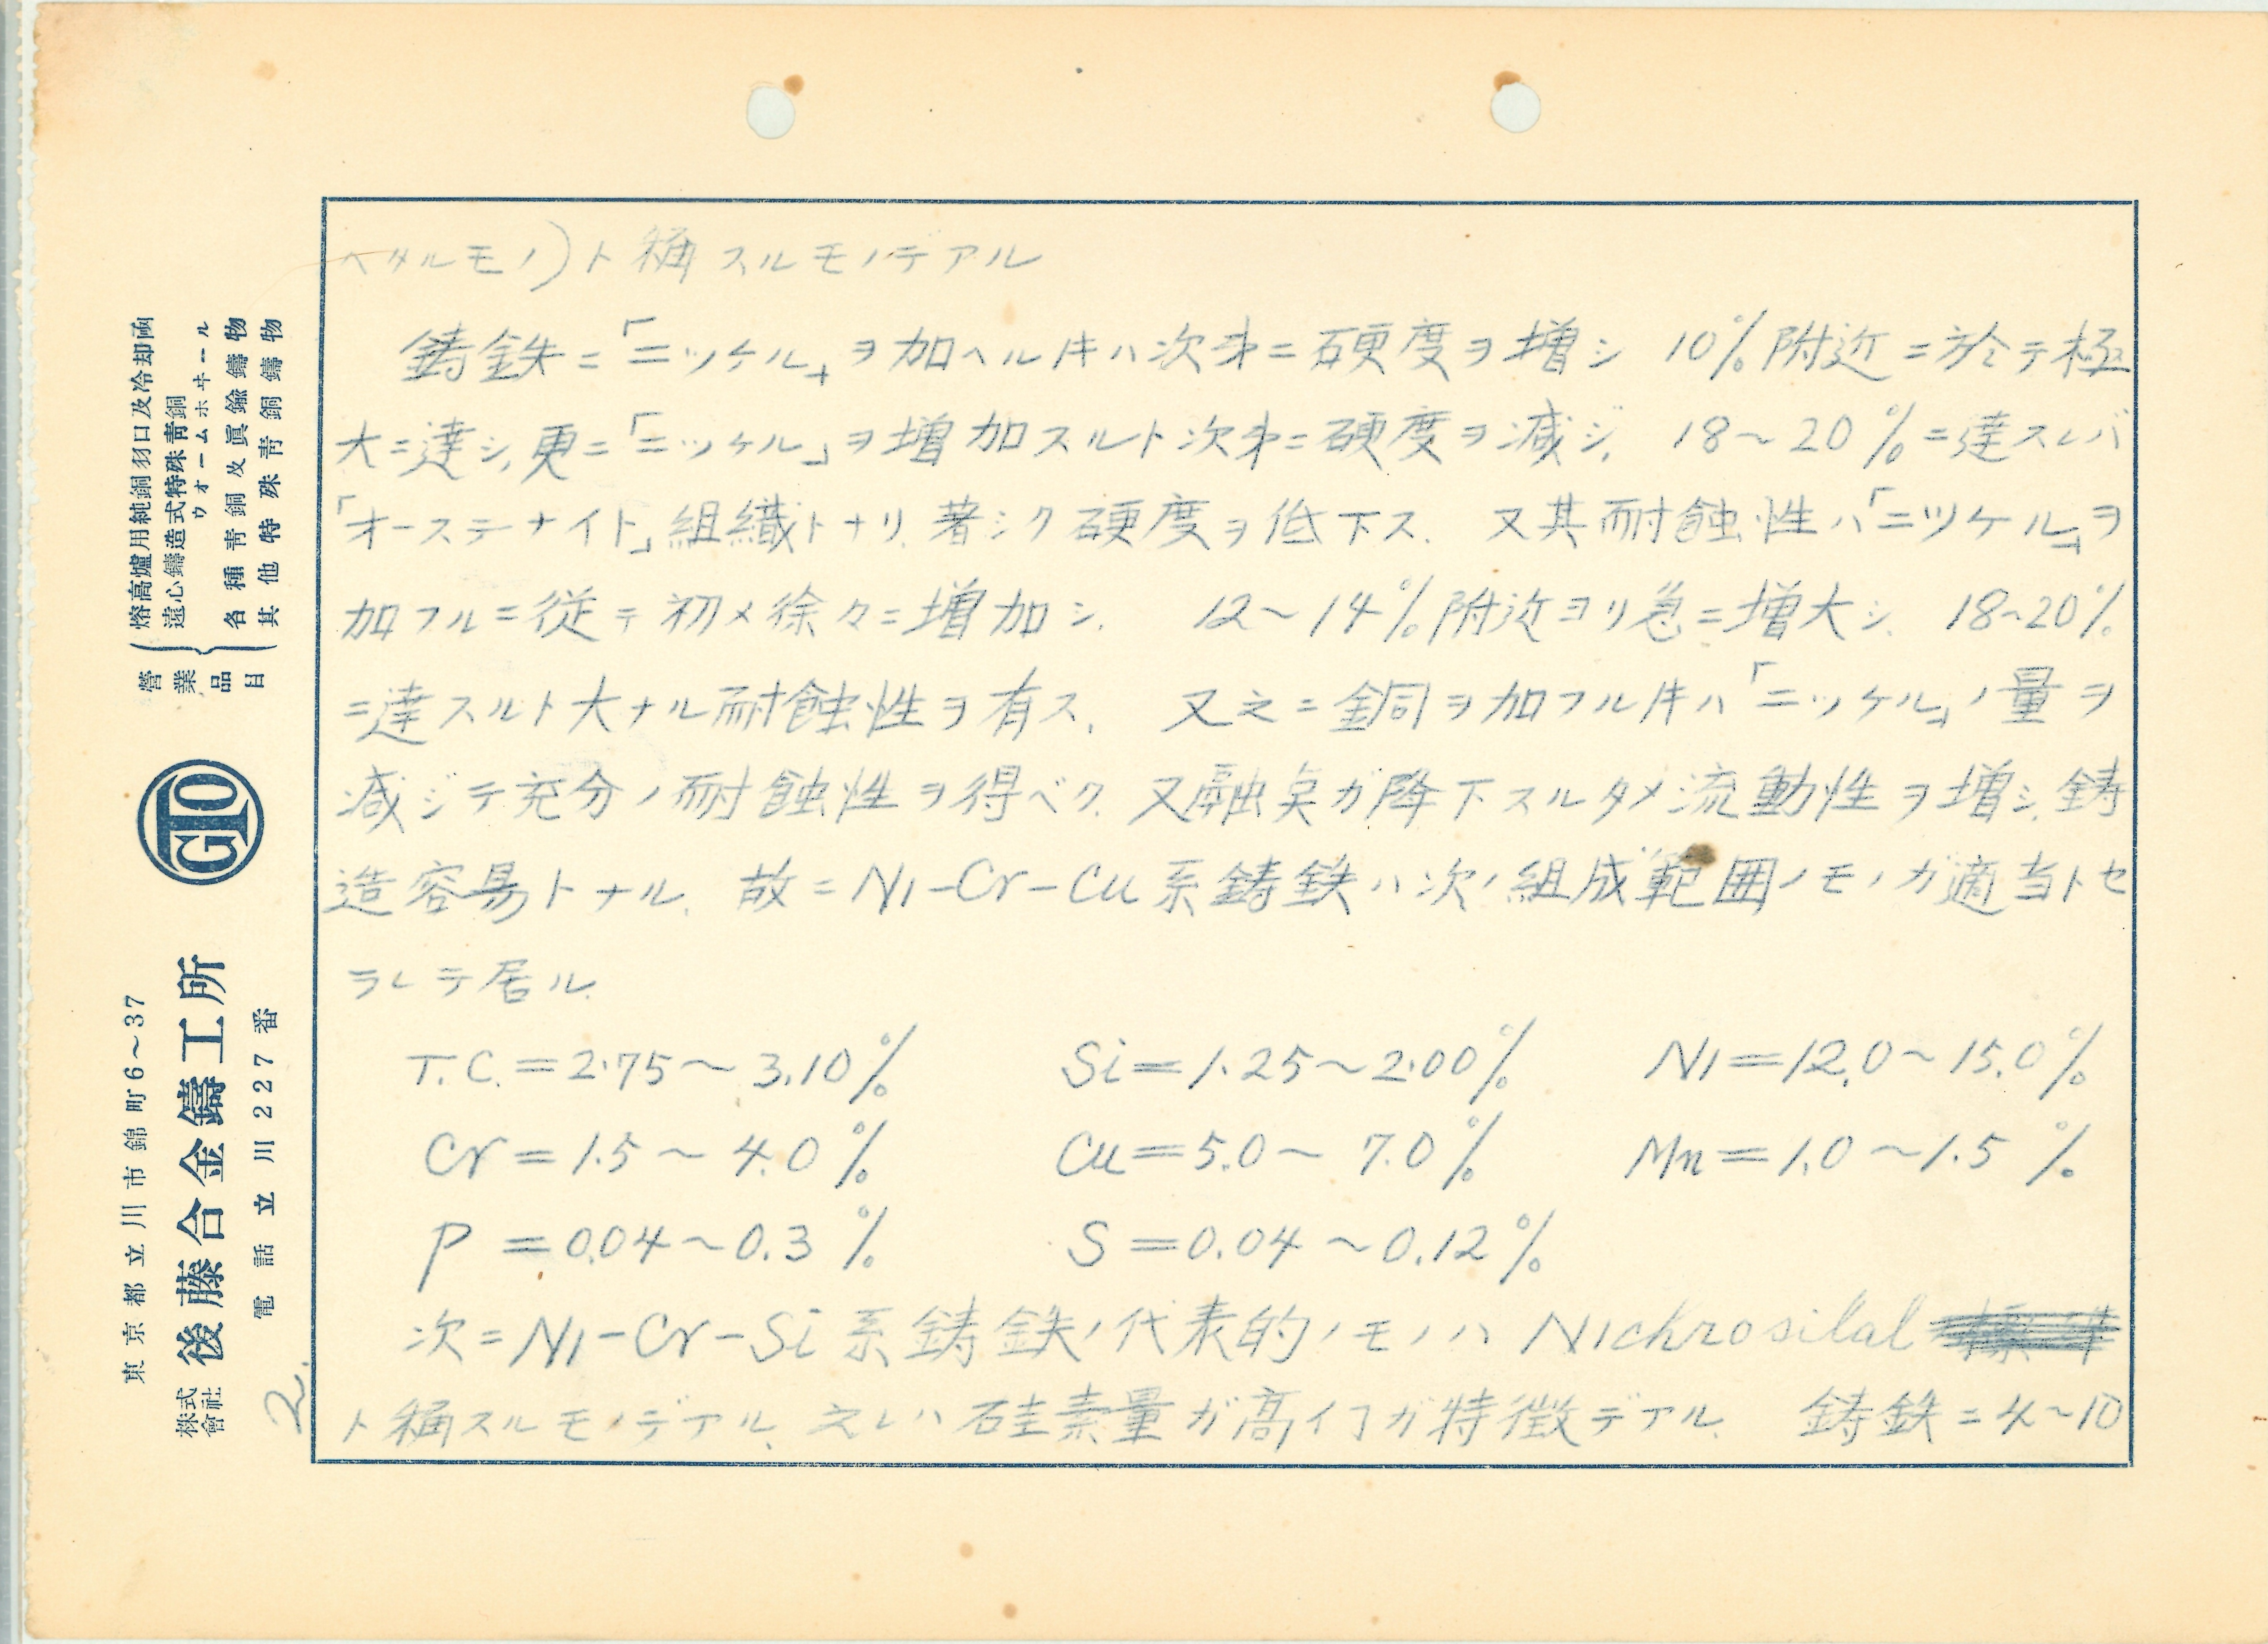 ヘタルモノ)ト稱スルモノデアル
鋳鉄ニ「ニッケル」ヲ加ヘル時ハ次第ニ硬度ヲ増シ 10%附近ニ於テ極
大ニ達シ,更ニ「ニッケル」ヲ増加スルト次第ニ硬度ヲ減ジ, 18〜20%ニ達スレバ
「オーステナイト」組織トナリ,著シク硬度ヲ低下ス. 又其耐蝕性ハ「ニッケル」ヲ
加フルニ従テ初メ徐々ニ増加シ. 12〜14%附近ヨリ急ニ増大シ. 18~20%
ニ達スルト大ナル耐蝕性ヲ有ス. 又之ニ銅ヲ加フル時ハ「ニッケル」ノ量ヲ
減ジテ充分ノ耐蝕性ヲ得ベク. 又融点ガ降下スルタメ流動性ヲ増シ.鋳
造容易トナル. 故ニNi-Cr-Cu系鋳鉄ハ次ノ組成範囲ノモノガ適当トセ
ラレテ居ル.
T.C.=2.75〜3.10% Si=1.25〜2.00% Ni=12.0〜15.0%
Cr=1.5〜4.0% Cu=5.0〜7.0% Mn=1.0〜1.5%
P=0.04〜0.3% S=0.04〜0.12%
次ニNi-Cr-Si系鋳鉄ノ代表的ノモノハ Nichrosilal
ト稱スルモノデアル. 之レハ硅素量ガ高イヿガ特徴デアル. 鋳鉄ニ4~10
2.
營業品目
熔高爐用純銅羽口及冷却函
遠心鑄造式特殊青銅
ウォームホヰール
各種青銅及眞鍮鑄物
其他特殊青銅鑄物
GTO
東京都立川市錦町6〜37
株式會社 後藤合金鑄工所
電話立川227番